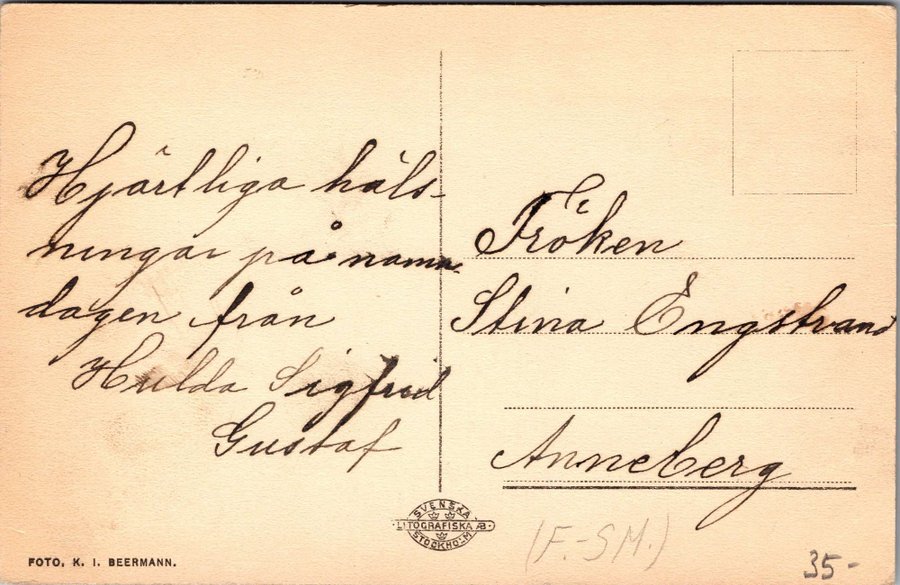 Hjärtliga häls-
ningar på namns
dagen från
Hulda Sigfrid
Gustaf
Fröken
Stina Engstrand
Anneberg
SVENSKA
LITOGRAFISKA AB.
STOCKHOLM
FOTO. K. I. BEERMANN.
(F.-SM.)
35-